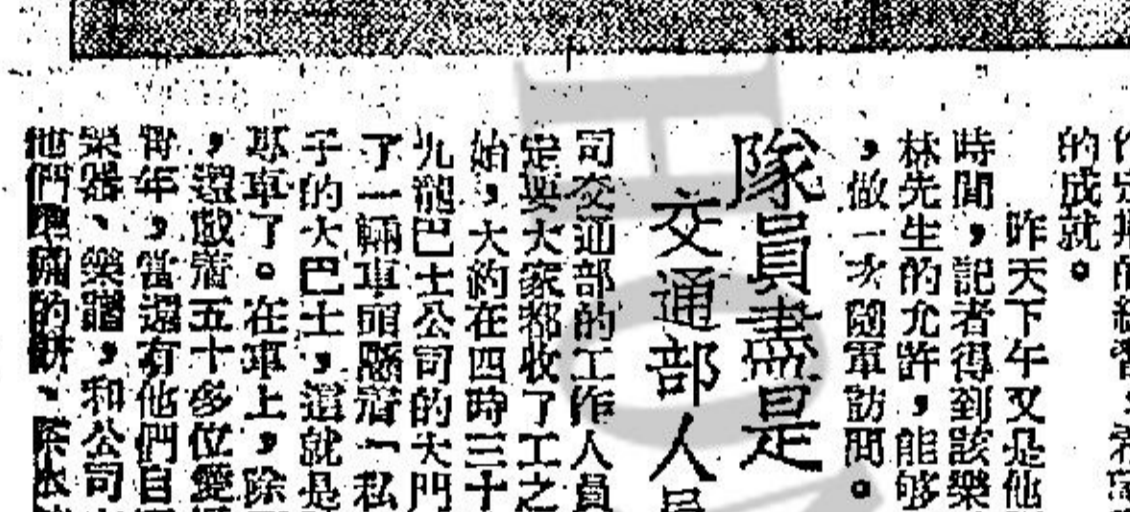 的成就。
昨天下午又是他
時間，記者得到該樂
林先生的允許，能够
，做一次隨軍訪問。
隊員盡是
交通部人員
司交通部的工作人員
定與大家都收了工之
始，大約在四時三十
九龍巴士公司的大門
了一輛車頭懸着「私
子的大巴士，這就是
專車了。在車上，除
，還載着五十多位愛
青年，當還有他們自
樂器、樂譜，和公司
他們準備的餅、